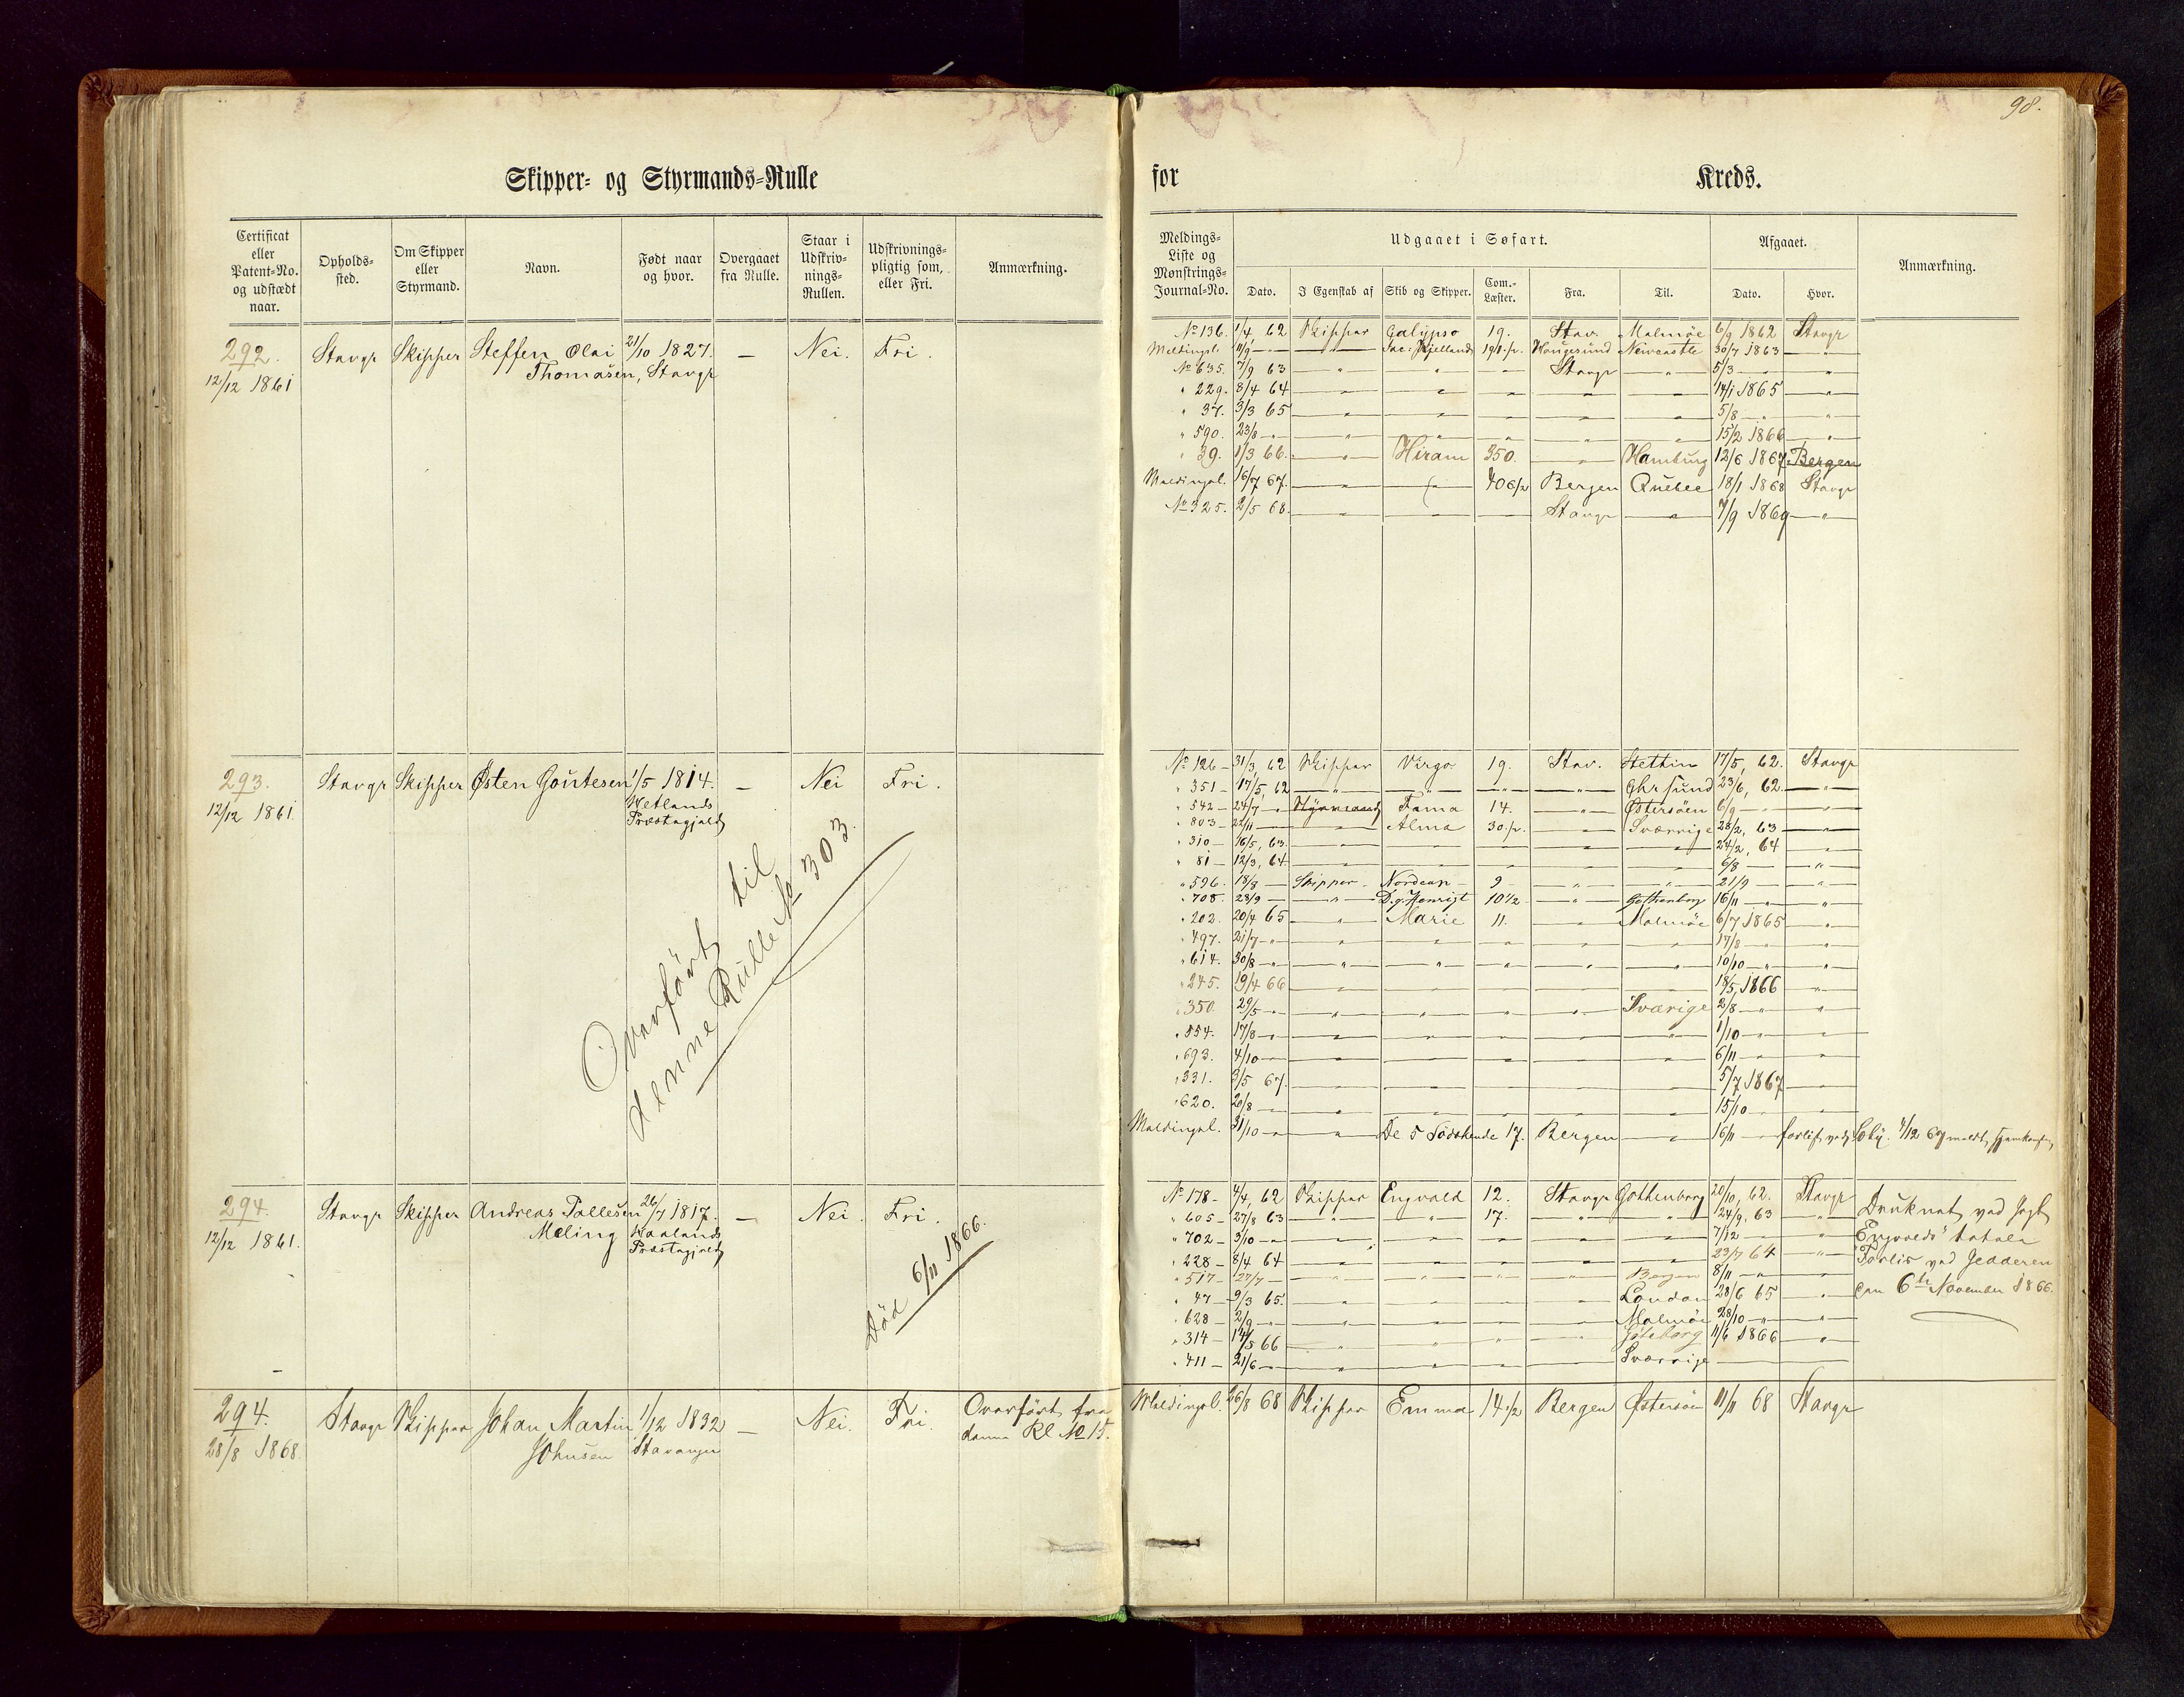 98.
Skipper- og Styrmands-Rulle for Kreds.
Certificat eller Patent-No. og udstædt naar.
Opholds-sted.
Om Skipper eller Styrmand.
Navn.
Født naar og hvor.
Overgaaet fra Rulle.
Staar i Udskriv-nings-Rullen.
Udskrivnings-pligtig som, eller Fri.
Anmærkning.
292. Stavgr Skipper Steffen Olai 21/10 1827. — Nei. Fri.
12/12 1861 Thomasen, Stavgr
293. Stavgr Skipper Østen Goutesen 1/5 1814. — Nei Fri.
12/12 1861. Hetlands
Præstegjeld
Overført til
denne Rulle No 303.
294. Stavgr Skipper Andreas Pallesen 26/7 1817. — Nei. Fri.
12/12 1861. Meling Haalands
Præstegjeld
Død 6/11 1866.
294. Stavgr Skipper Johan Martin 1/12 1832 — Nei. Fri. Overført fra
28/8 1868. Johnsen Stavanger denne Rl No 15.
Meldings-Liste og Mønstrings-Journal-No.
Udgaaet i Søfart.
Afgaaet.
Anmærkning.
Dato. I Egenskab af Skib og Skipper. Com.-Læster. Fra. Til. Dato. Hvor.
No 136. 1/4, 62 Skipper Galypso 19. Stav. Malmöe 6/9 1862 Stavgr
Meldingsl. 11/9 — " Jac: Kjelland 191 1/2. Haugesund Newcastle 30/7 1863 "
No 635. 7/9 63 " " — Stavgr " 5/3 — "
" 229. 8/4 64 " " " " " 14/1 1865 "
" 37. 3/3 65 " " " " " 5/8 — "
" 590. 23/8 " " " " " " 15/2 1866 "
" 39. 1/3 66. " Hiram 350. " Hamburg 12/6 1867 Bergen
Meldingsl. 16/7 67. " " 406 1/2 Bergen Quebec 18/1 1868 Stavgr
No 325. 2/5 68. " " " Stavgr " 7/9 1869 "
No 126 — 31/3, 62 Skipper Virgo 19. Stav. Stettin 17/5, 62. Stavgr
" 351 — 17/5, 62 " " " " Ghrsund 23/6, 62. "
" 542 — 24/7 — Styrmand Fama 14. " Østersöen 6/9 — "
" 803 — 22/11 — " Alma 30 1/2. " Sværrige 28/2, 63. "
" 310 — 16/5, 63. " " " " " 24/2, 64 "
" 81 — 12/3, 64 " " " " " 6/8 — "
" 596. 18/8 — Skipper Nordcap 9 " " 21/9 — "
" 708. 28/9 — " 10 1/2 " Gothenborg 16/11 — "
" 202. 20/4 65 " Marie 11. " Malmöe 6/7 1865 "
" 497. 21/7 " " " " " " 17/8 — "
" 614. 30/8 " " " " " " 10/10 " "
" 245. 19/4 66 " " " " " 18/5, 1866 "
" 350. 29/5 " " " " " Sværige 2/8 " "
" 554. 17/8 " " " " " " 1/10 " "
" 693. 4/10 " " " " " " 6/11 " "
" 331. 3/5 67. " " " " " 5/7 1867 "
" 620. 20/8 " " " " " " 15/10 "
Meldingsl. 31/10 " " De 5 Södskende 17. Bergen " 16/11 — forlist ved 4/12 67 meldt hjemkomst
No 178 — 4/4, 62 Skipper Engvald 12. Stavgr Gothenborg 20/10, 62. Stavgr Druknet ved Jagt
" 605 — 27/8 63 " " 17. " " 24/9, 63 " Engvalds" totale
" 702 — 3/10 " " " " " " 7/12 — " Forlis ved Jedderen
" 228 — 8/4 64 " " " " " 23/7 64 " den 6te November 1866.
" 517 — 27/7 — " " " " Bergen 8/11 " "
" 47 — 9/3 65. " " " " London 28/6 65 "
" 628 — 2/9 " " " " " Malmöe 28/10 " "
" 314 — 14/5 66 " " " " Göteborg 11/6 1866 "
" 411 — 21/6 " " " " " Sværrige
Meldingsl. 26/8 68 Skipper Emma 14 1/2 Bergen Østersöen 11/11 68 Stavgr